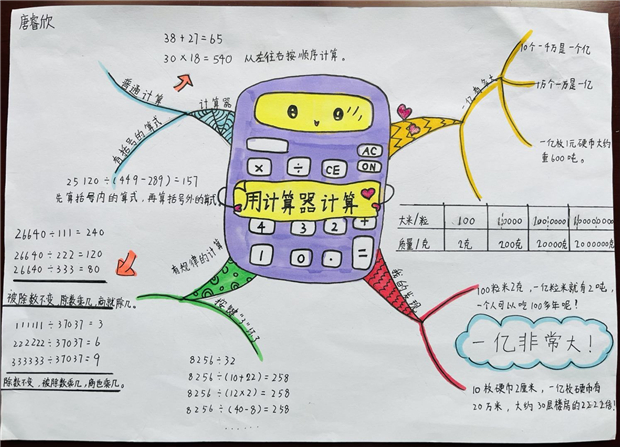 唐睿欣
38+27=65
30×18=540 从左往右按顺序计算。
普通计算
计算器
有括号的算式
25120÷(449-289)=157
先算括号内的算式,再算括号外的算式
26640÷111=240
26640÷222=120
26640÷333=80
被除数不变,除数乘几,商就除几。
111111÷37037=3
222222÷37037=6
333333÷37037=9
除数不变,被除数乘几,商也乘几。
有规律的计算
按键"3"坏了
8256÷32
8256÷(10+22)=258
8256÷(12×2)=258
8256÷(40-8)=258
......
AC
× ÷ CE ON
用计算器计算
4 3 2 +
1 0 . =
一亿有多大
10个一千万是一个亿
1万个一万是一亿
一亿枚1元硬币大约
重600吨。
大米/粒 100 10000
质量/克 2克 200克 20000克 2000000克
我的发现
100粒米2克,一亿粒米就有2吨,
一个人可以吃100多年呢!
一亿非常大!
10枚硬币2厘米,一亿枚硬币有
20万米,大约30层楼房的2222倍!